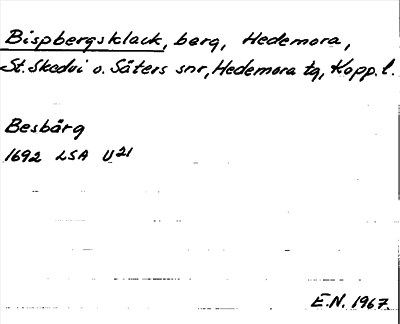 Bispbergsklack, berg, Hedemora,
St. Skedvi o. Säters snr, Hedemora tg, Kopp. l.
Besbärg
1692 LSA U21
E.N. 1967.